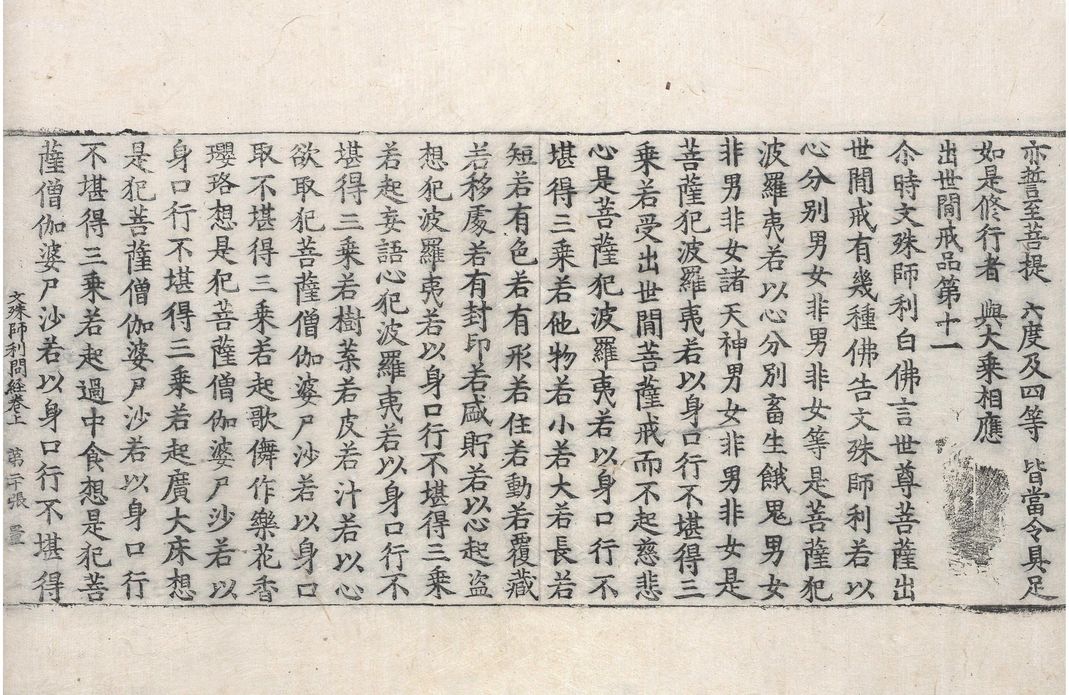 亦誓至菩提 六度及四等 皆當令具足
如是修行者 與大乘相應
出世間戒品第十一
尒時文殊師利白佛言世尊菩薩出
世間戒有幾種佛告文殊師利若以
心分別男女非男非女等是菩薩犯
波羅夷若以心分別畜生餓鬼男女
非男非女諸天神男女非男非女是
菩薩犯波羅夷若以身口行不堪得三
乘若受出世間菩薩戒而不起慈悲
心是菩薩犯波羅夷若以身口行不
堪得三乘若他物若小若大若長若
短若有色若有形若住若動若覆藏
若移處若有封印若盛貯若以心起盜
想犯波羅夷若以身口行不堪得三乘
若起妄語心犯波羅夷若以身口行不
堪得三乘若樹葉若皮若汁若以心
欲取犯菩薩僧伽婆尸沙若以身口
取不堪得三乘若起歌儛作樂花香
瓔珞想是犯菩薩僧伽婆尸沙若以
身口行不堪得三乘若起廣大床想
是犯菩薩僧伽婆尸沙若以身口行
不堪得三乘若起過中食想是犯菩
薩僧伽婆尸沙若以身口行不堪得
文殊師利問經卷上 第 張